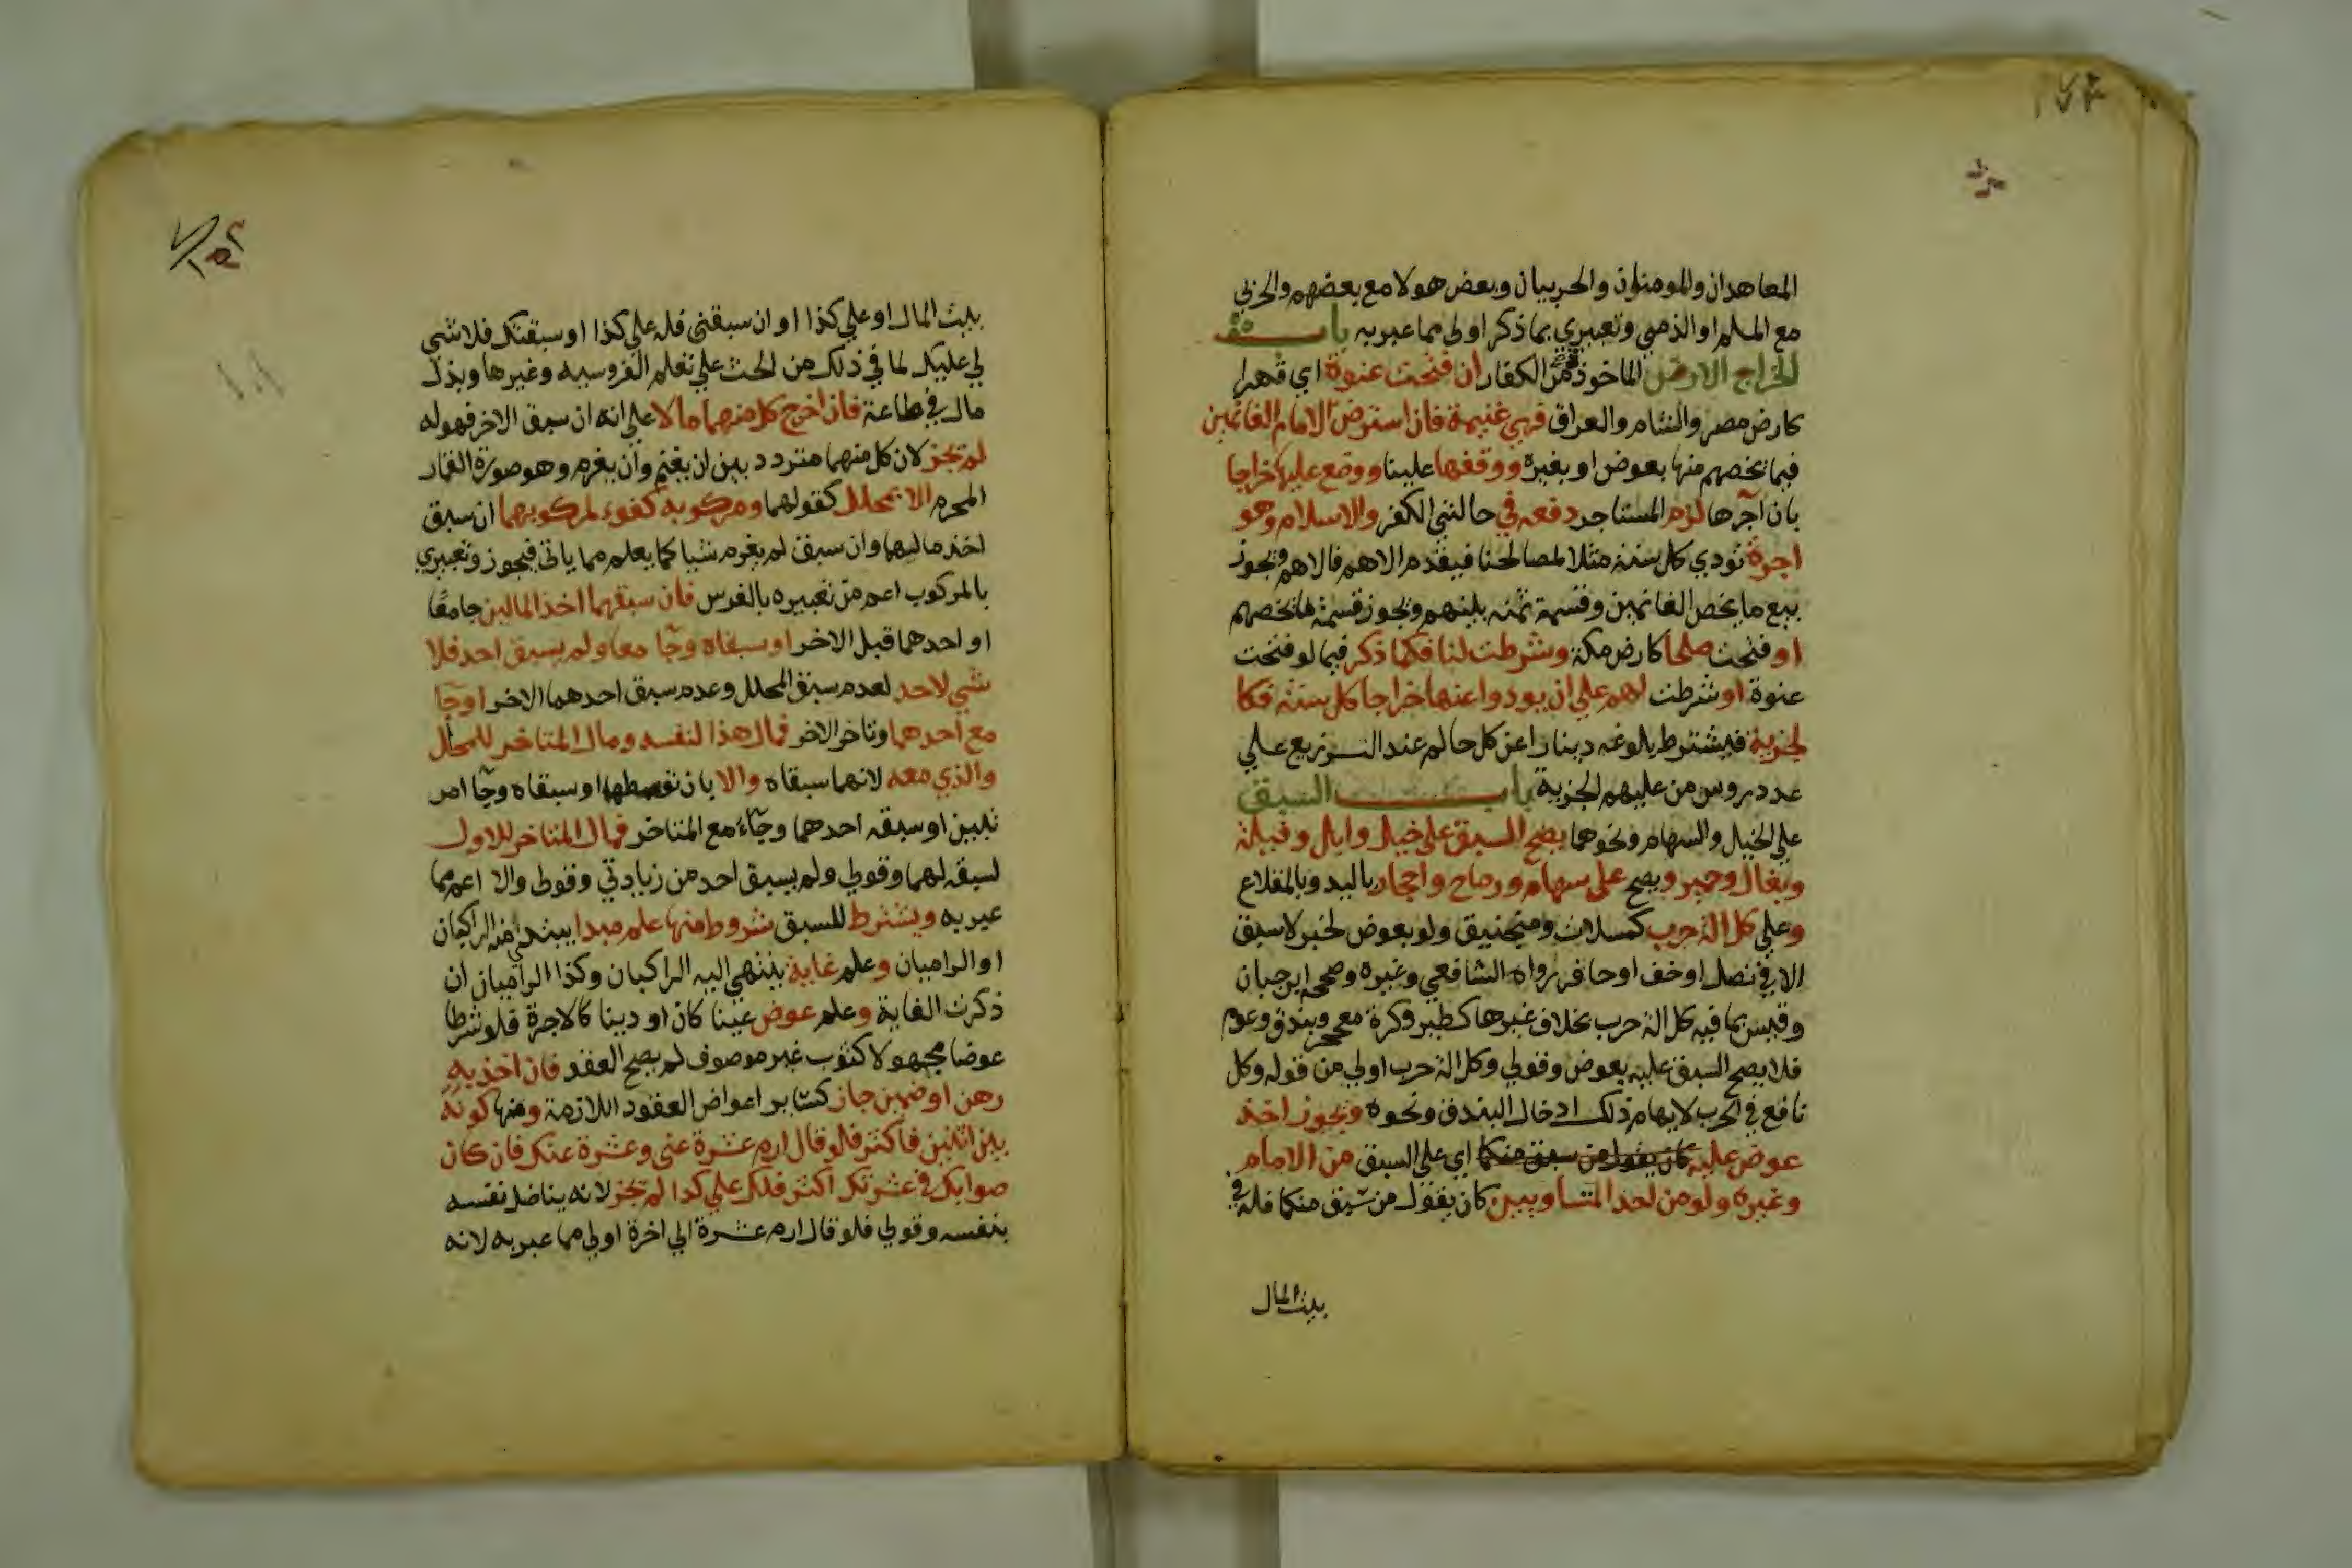 المعاهدان والمومنان والحربيان وبعض هولا مع بعضهم والحربي
مع المسلم او الذمي وتعبيري بما ذكر اولى مما عبر به باب
الخراج الارض الماخوذة من الكفار ان فتحت عنوة اي قهرا
كارض مصر والشام والعراق فهي غنيمة فان استرض الامام الغانمين
فيما يخصهم منها بعوض او بغيره ووقفها علينا ووضع عليها خراجا
بان آجرها لزم المستاجر دفعه في حالتي الكفر والاسلام وهو
اجرة تودي كل سنة مثلا لمصالحنا فيقدم الاهم فالاهم ويجوز
بيع ما يخص الغانمين وقسمة ثمنه بينهم ويجوز قسمة ما يخصهم
او فتحت صلحا كارض مكة وشرطت لنا فكما ذكر فيما لو فتحت
عنوة او شرطت لهم علي ان يودوا عنها خراجا كل سنة فكا
لجزية فيشترط بلوغه دينارا عن كل حالم عند التوزيع علي
عدد روس من عليهم الجزية باب السبق
علي الخيل والسهام ونحوهما يصح السبق على خيل وابل وفيلة
وبغال وحمير ويصح على سهام ورماح واحجار باليد وبالمقلاع
وعلي كل الة حرب كمسلات ومنجنيق ولو بعوض لخبر لا سبق
الا في نصل او خف او حافر رواه الشافعي وغيره وصححه ابن حبان
وقيس بما فيه كل الة حرب بخلاف غيرها كطير وكرة محجر وبندق وعوم
فلا يصح السبق عليه بعوض وقولي وكل الة حرب اولي من قوله وكل
نافع في الحرب لايهام ذلك ادخال البندق ونحوه ويجوز اخذ
عوض عليه كان يقول من سبق منكما اي على السبق من الامام
وغيره ولو من احد المتساويين كان يقول من سبق منكما فله في
بيت المال
بيت المال او علي كذا او ان سبقتني فله علي كذا او سبقتك فلا شي
لي عليك لما في ذلك من الحث علي تعلم الفروسيه وغيرها وبذل
مال في طاعة فان اخرج كل منهما مالا علي انه ان سبق الاخر فهو له
لم تجز لان كل منهما متردد بين ان يغنم وان يغرم وهو صورة القمار
المحرم الا بمحلل كقولهما ومركوبه كفوء لمركوبهما ان سبق
اخذ ماليهما وان سبق لم يغرم شيا كما يعلم مما ياتي فيجوز وتعبيري
بالمركوب اعم من تعبيره بالفرس فان سبقهما اخذ المالين جا معا
او احدهما قبل الاخر او سبقاه وجآ معا ولم يسبق احد فلا
شي لاحد لعدم سبق المحلل وعدم سبق احدهما الاخر او جآ
مع احدهما وتاخر الاخر فمال هذا لنفسه ومال المتاخر للمحلل
والذي معه لانهما سبقاه والا بان توسطهما او سبقاه وجآ امر
تبين او سبقه احدهما وجآء مع المتاخر فمال المتاخر للاول
لسبقه لهما وقولي ولم يسبق احد من زيادتي وقولي والا اعم مما
عبر به ويشترط للسبق شروط منها علم مبدا يبتدي منه الراكبان
او الراميان وعلم غاية ينتهي اليه الراكبان وكذا الراميان ان
ذكرت الغاية وعلم عوض عينا كان او دينا كالاجرة فلو شرطا
عوضا مجهولا كثوب غير موصوف لم يصح العقد فان اخذ به
رهن او ضمين جاز كساير اعواض العقود اللازمة ومنها كونه
بين اثنين فاكثر فلو قال ارم عشرة عني وعشرة عنك فان كان
صوابك في عشرتك اكثر فلك علي كذا لم تجز لانه يناضل نفسه
بنفسه وقولي فلو قال ارم عشرة الي اخرة اولي مما عبر به لانه